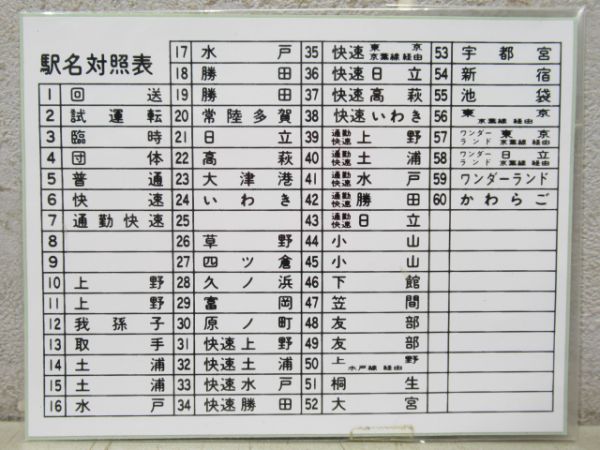 駅名対照表
1 回送
2 試運転
3 臨時
4 団体
5 普通
6 快速
7 通勤快速
8
9
10 上野
11 上野
12 我孫子
13 取手
14 土浦
15 土浦
16 水戸
17 水戸
18 勝田
19 勝田
20 常陸多賀
21 日立
22 高萩
23 大津港
24 いわき
25
26 草野
27 四ツ倉
28 久ノ浜
29 富岡
30 原ノ町
31 快速上野
32 快速土浦
33 快速水戸
34 快速勝田
35 快速 東京 京葉線 経由
36 快速日立
37 快速高萩
38 快速いわき
39 通勤快速 上野
40 通勤快速 土浦
41 通勤快速 水戸
42 通勤快速 勝田
43 通勤快速 日立
44 小山
45 小山
46 下館
47 笠間
48 友部
49 友部
50 上野 水戸線 経由
51 桐生
52 大宮
53 宇都宮
54 新宿
55 池袋
56 東京 京葉線 経由
57 ワンダーランド 東京 京葉線 経由
58 ワンダーランド 日立 京葉線 経由
59 ワンダーランド
60 かわらご